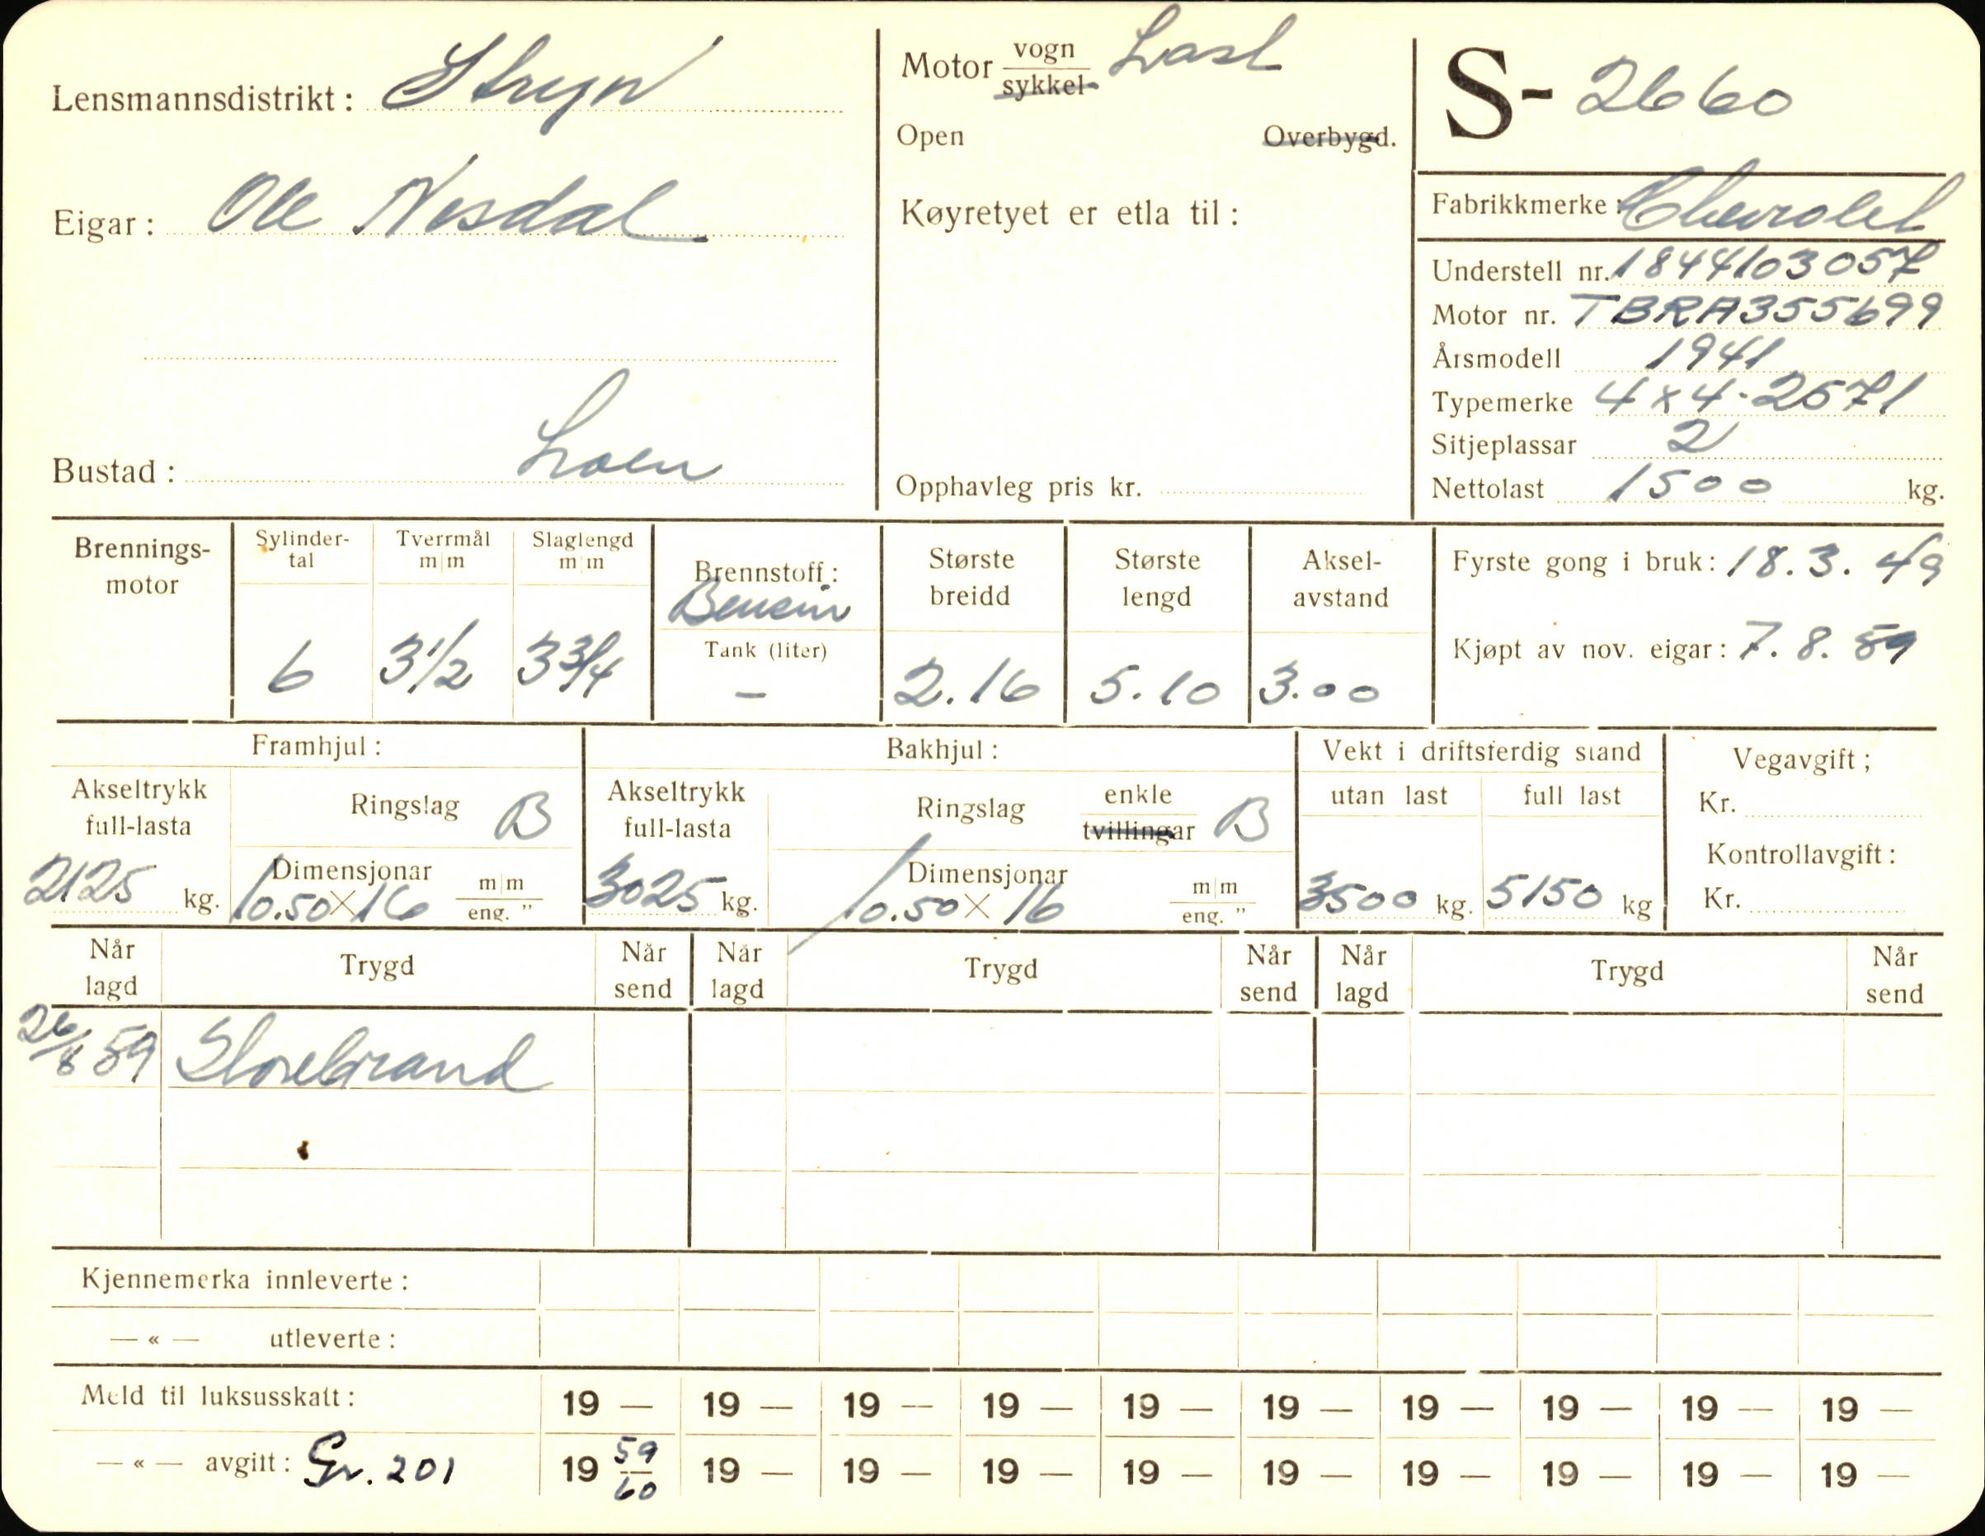 Lensmannsdistrikt: Stryn
Eigar: Ole Nesdal
Bustad: Loen
Motor vogn Last
sykkel
Open Overbygd.
Køyretyet er etla til:
Opphavleg pris kr.
S-2660
Fabrikkmerke: Chevrolet
Understell nr. 1844103057
Motor nr. TBRA355699
Årsmodell 1941
Typemerke 4x4-2571
Sitjeplassar 2
Nettolast 1500 kg.
Brennings-
motor
Sylinder-
tal
6
Tverrmål
m|m
3 1/2
Slaglengd
m|m
3 3/4
Brennstoff:
Bensin
Tank (liter)
-
Største
breidd
2.16
Største
lengd
5.10
Aksel-
avstand
3.00
Fyrste gong i bruk: 18.3.49
Kjøpt av nov. eigar: 7.8.59
Framhjul:
Akseltrykk
full-lasta
2125 kg.
Ringslag B
Dimensjonar
10.50 x 16 m|m
eng. "
Bakhjul:
Akseltrykk
full-lasta
3025 kg.
Ringslag enkle
tvillingar B
Dimensjonar
10.50 x 16 m|m
eng. "
Vekt i driftsferdig stand
utan last full last
3500 kg. 5150 kg
Vegavgift;
Kr.
Kontrollavgift:
Kr.
Når
lagd Trygd Når
send Når
lagd Trygd Når
send Når
lagd Trygd Når
send
26/8 59 Storebrand
Kjennemerka innleverte:
— « — utleverte:
Meld til luksusskatt: 19 — 19 — 19 — 19 — 19 — 19 — 19 — 19 — 19 — 19 —
— « — avgift: Gr. 201 19 59/60 19 — 19 — 19 — 19 — 19 — 19 — 19 — 19 — 19 —